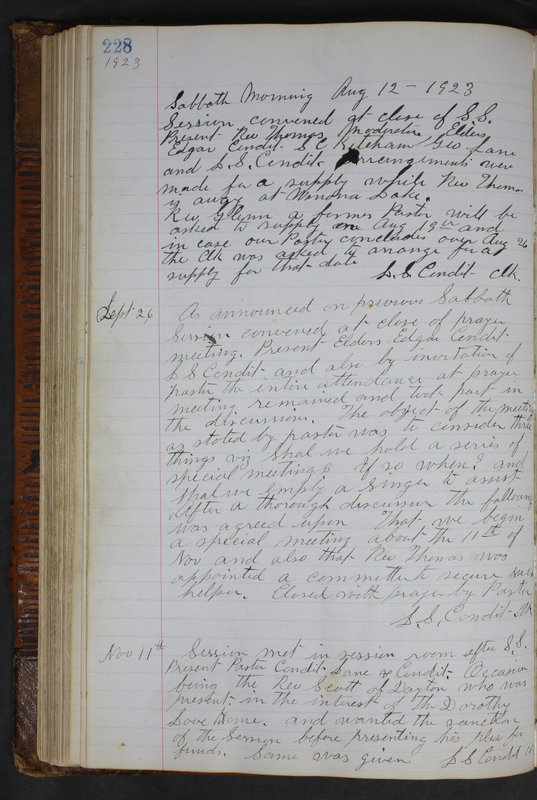 228
1923
Sabbath Morning Aug 12 - 1923
Session convened at close of S.S.
Present Rev Thomas, Moderator, Elders
Edgar Condit S C Ketcham Geo Lane
and S.S. Condit. Arrangements were
made for a supply while Rev Thomas
is away at Winona Lake.
Rev Glynn a former Pastor will be
asked to supply on Aug 19th and
in case our Pastor concludes over Aug 26
the Clk was asked to arrange for a
supply for that date
S.S Condit Clk.
Sept 26 As announced on previous Sabbath
Session convened at close of prayer
meeting. Present Elders Edgar Condit
S S Condit and also by invitation of
pastor the entire attendance at prayer
meeting remained and took part in
the discussion. The object of the meeting
as stated by pastor was to consider three
things viz Shal we hold a series of
special meetings If so when? and
Shal we employ a Singer to assist
After a thorough discussion the following
was agreed upon That we begin
a special meeting about the 11th of
Nov and also that Rev Thomas was
appointed a committe to secure such
helper. Closed with prayer by Pastor
S.S. Condit Clk
Nov 11th Session met in session room after S.S.
Present Pastor Condit Lane & Condit. Occasion
being the Rev Scott of Dayton who was
present in the interest of the Dorothy
Love Home. and wanted the sanction
of the Session before presenting his plea for
funds. Same was given S S Condit